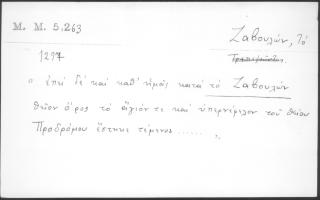 M. M. 5.263
Ζαβουλών, Τό
1297
" ἐπεὶ δὲ καὶ καθ' ἡμᾶς κατὰ τὸ Ζαβουλών
θεῖον ὄρος τὸ ἅγιόν τε καὶ ὑπερνέφελον τοῦ θείου
Προδρόμου ἕστηκε τέμενος ...... "